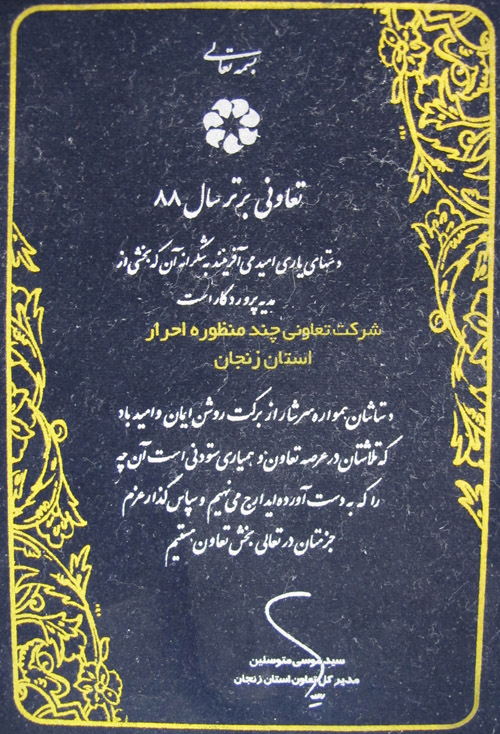 بسمه تعالی
تعاونی برتر سال ۸۸
دستهای یاری امید می آفرینند به شکرانه آن که بخشی از
هدیه پروردگار است
شرکت تعاونی چند منظوره احرار
استان زنجان
دستانتان همواره سرشار از برکت روشن ایمان و امید باد
که تلاشتان در عرصه تعاون و همیاری ستودنی است آن چه
را که به دست آورده اید ارج می نهیم و سپاس گذار عزم
جزمتان در تعالی بخش تعاون هستیم
سید موسی متوسلین
مدیر کل تعاون استان زنجان